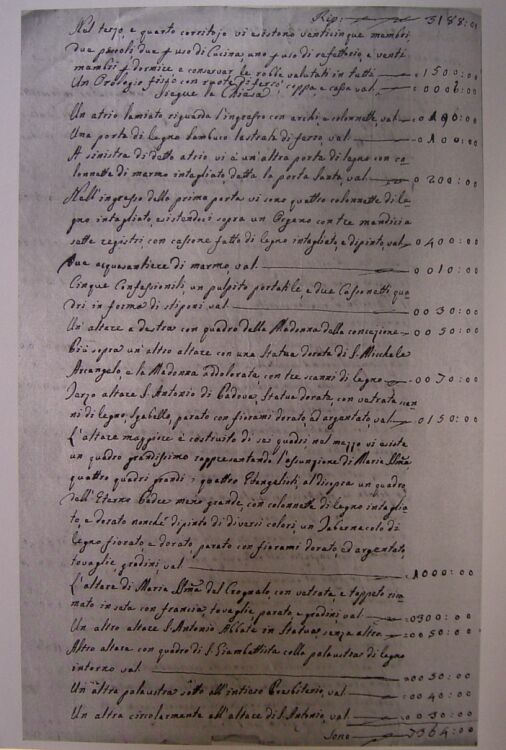 Rip: 3188:00
Nel terzo, e quarto corritojo vi esistono venticinque membri,
due piccoli due p uso di Cucina uno p uso di refettorio, e venti
membri p dormire e conservar le robbe valutati in tutto 1500:00
Un Orologio fisso con ruote di ferro, ceppa, e cassa val 000:00
Siegue la Chiesa
Un atrio lamiato, riguarda l'ingresso con archi, e colonnette, val 0190:00
Una porta di legno lastrata di ferro, val 0100:00
A sinistra di detto atrio vi è un'altra porta di legno con co
lonnette di marmo intagliato, detta la porta Santa, val 0200:00
Nell'ingresso della prima porta vi sono quattro colonnette di le
gno intagliato, esistendoci sopra un Organo con tre mandicia
sette registri, con cassone fatto di legno intagliato, e dipinto, val 0400:00
Due acquasantiere di marmo, val 0010:00
Cinque Confessionili, un pulpito portatile, e due Cassonetti, qua
dri in forma di stiponi val 0030:00
Un altare a destra con quadro della Madonna della concezione 0050:00
Più sopra un'altro altare con una Statua dorata di S. Micchele
Arcangelo, e la Madonna addolorata, con tre scanni di legno 0070:00
Terzo altare S. Antonio di Padova, Statua dorata, con vetrata, scan
ni di legno, sgabello, parato con fiorami dorato, ed argentato val 0150:00
L'altare maggiore è costruito di sei quadri nel mezzo vi esiste
un quadro grandissimo rappresentando l'assunzione di Maria SSma
quattro quadri grandi, i quattro Evangelisti, al di sopra un quadro
dell'Eterno Padre meno grande, con colonnette di legno intaglia
to, e dorato nonchè dipinto di diversi colori, un Tabernacolo di
legno fiorato, e dorato, parato con fiorami dorato, ed argentato,
tovaglie gradini, val 1000:00
L'altare di Maria SSma del Crognale, con vetrata, e tappeto rica
mato in seta con francia, tovaglie, parato e gradini val 0300:00
Un altro altare S. Antonio Abbate in Statua, senza altro 0050:00
Altro altare con quadro di S. Giambattista colla palaustra di legno
intorno val 0050:00
Un'altra palaustra sotto all'intiero Presbiterio, val 0040:00
Un altra circolarmente all'altare di S. Antonio, val 0030:00
Sono 7364:00